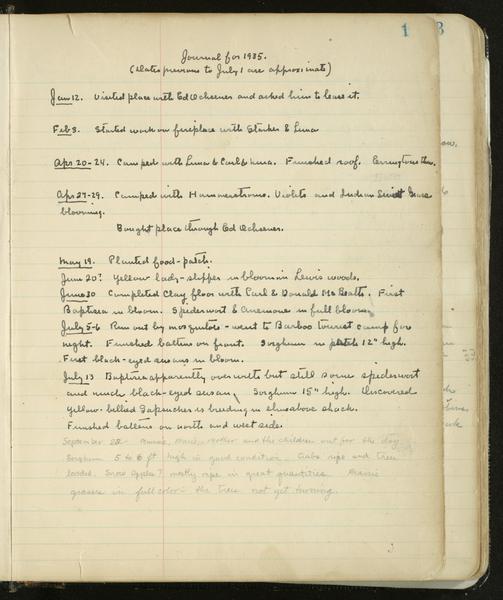 1
Journal for 1935.
(Dates previous to July 1 are approximate)
Jan 12. Visited place with Ed Ochsner and asked him to lease it.
Feb 8. Started work on fireplace with Starker & Luna
Apr 20-24. Camped with Luna & Carl & Nina. Finished roof.
Apr 27-29. Camped with Hammerstroms. Violets and Indian Sweet Grass
blooming.
Bought place through Ed Ochsner.
May 19. Planted food-patch.
June 20? Yellow lady-slipper in bloom in Lewis woods.
June 30 Completed clay floor with Carl & Donald. First
Baptisea in bloom. Spiderwort & Anemone in full bloom
July 5-6 Run out by mosquitoes - went to Barboo tourist camp for
night. Finished battens on front. Sorghum in patch 12" high.
First black-eyed susans in bloom.
July 13 Baptisea apparently over with but still some spiderwort
and much black-eyed susan, Sorghum 15" high. Uncovered
Yellow-bellied Sapsucker is breeding in elms above shack.
Finished battens on north and west side.
September 22 mother and the children out for the day
Sorghum 5 to 6 ft high in good condition. Crabs ripe and tree
loaded. Snow apples? mostly ripe in great quantities. Prairie
grasses in full color - the trees not yet turning.
3